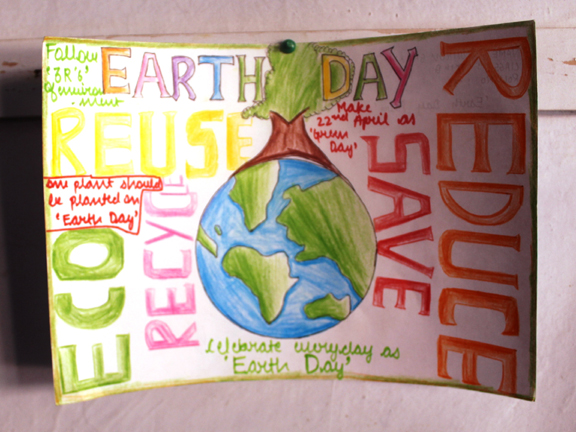 Follow
'3R's'
of environ
ment
EARTH DAY
REUSE
Make
22nd April as
'Green
Day'
one plant should
be planted on
'Earth Day'
ECO
RECYCLE
SAVE
REDUCE
Celebrate everyday as
"Earth Day"